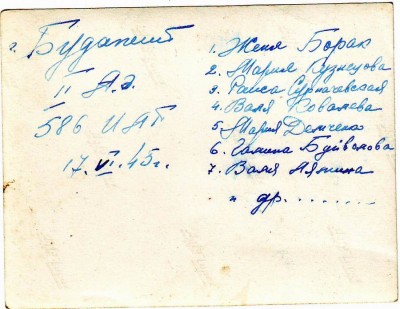 г. Будапешт
II А.д.
586 ИАП
17.VI.45г.
1. Женя Борак
2. Мария Кузнецова
3 Раиса Сурначевская
4. Валя Ковалева
5. Мария Демченко
6. Галина Буйванова
7. Валя Лямина
и др.........